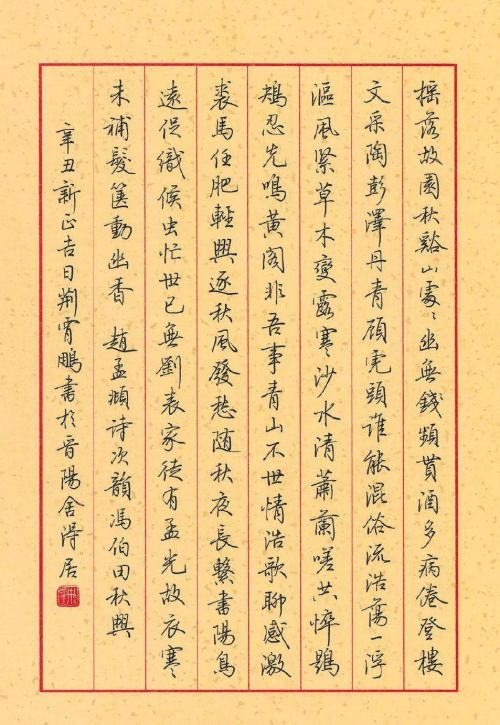 摇落故園秋谿山處〻幽無錢頻貰酒多病倦登樓
文采陶彭澤丹青顧虎頭誰能混俗流浩蕩一浮
漚風緊草木變露寒沙水清蕭蘭嗟共悴鶗
鴂忍先鳴黃閣非吾事青山不世情浩歌聊感激
裘馬任肥輕興逐秋風發愁隨秋夜長繫書陽鳥
遠促織候虫忙世已無劉表家徒有孟光故衣寒
未補髮篋動幽香 趙孟頫詩次韻馮伯田秋興
辛丑新正吉日荊霄鵬書於晋陽舍得居